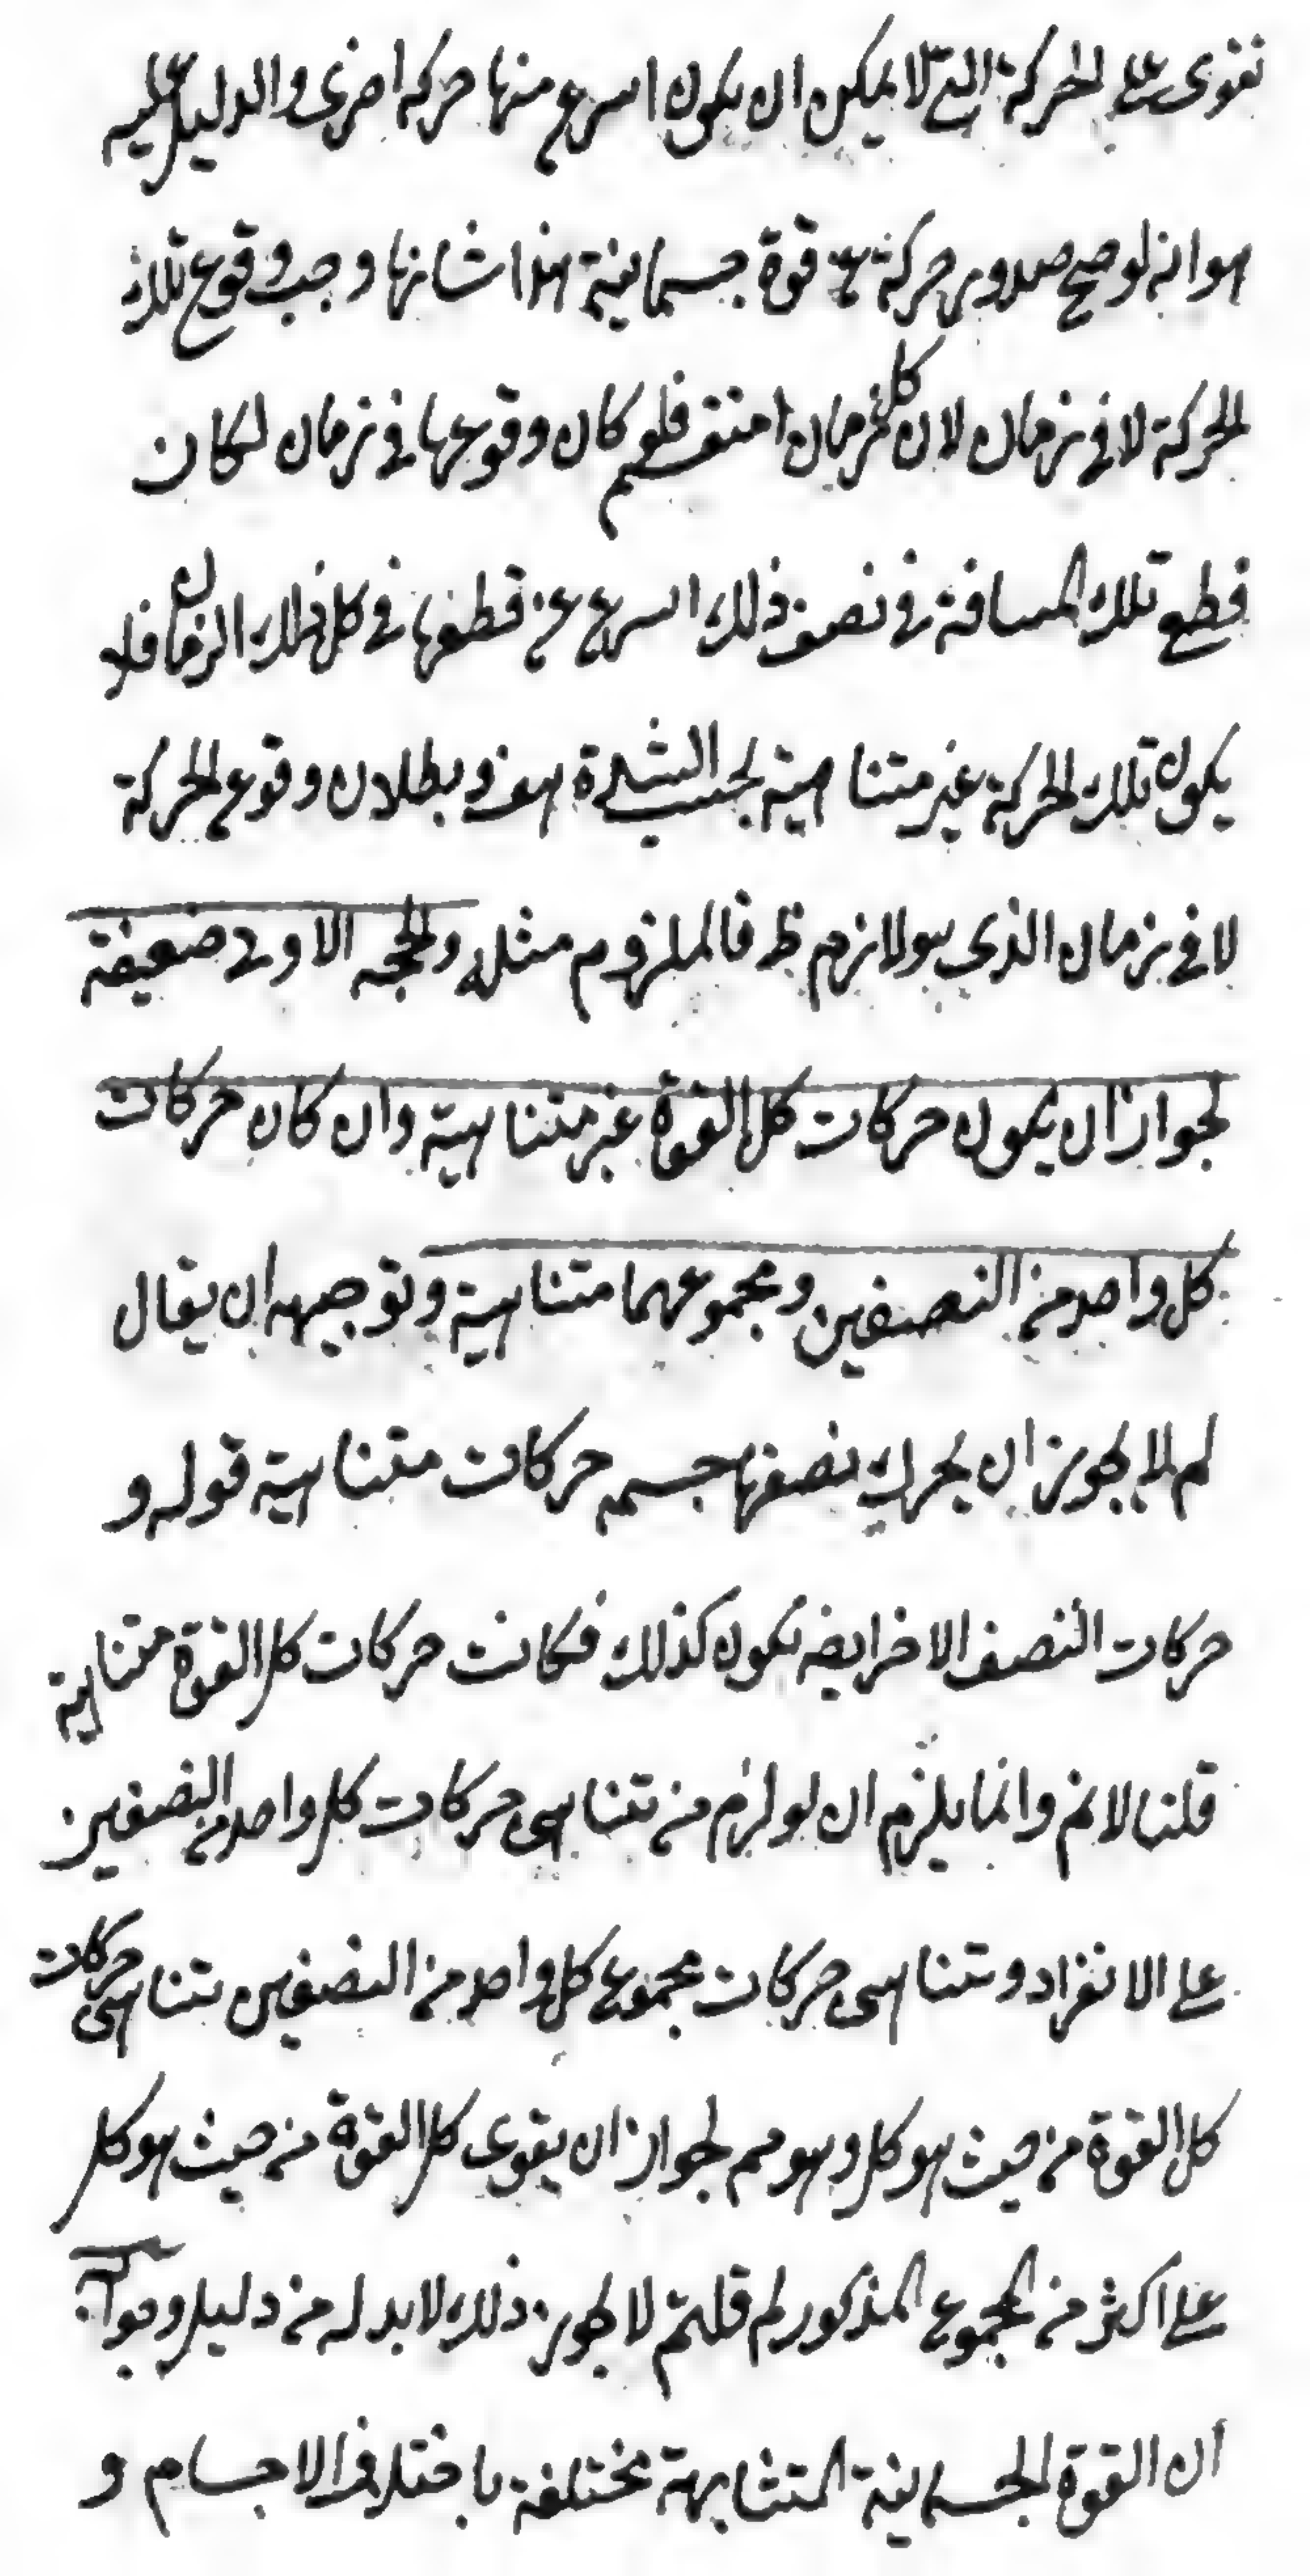 تقوى على الحركة التى لا يمكن ان يكون اسرع منها حركة اخرى والدليل عليه
هو انه لو صح صدور حركة عن قوة جسمانية هذا شانها وجب وقوع تلك
الحركة لا فى زمان لان كل زمان منقسم فلو كان وقوعها فى زمان لكان
قطع تلك المسافة فى نصف ذلك اسرع عن قطعها فى كل ذلك الزمان فلا
يكون تلك الحركة غير متناهية بحسب الشدة هف وبطلان وقوع الحركة
لا فى زمان الذى هو لازم ظ فالملزوم مثله والحجه الاولى ضعيفة
لجواز ان يكون حركات كل القوة غير متناهية وان كان حركات
كل واحد من النصفين ومجموعهما متناهية وتوجيهه ان يقال
لم لا يجوز ان يحرك نصفها جسم حركات متناهية قوله و
حركات النصف الاخر ايضه يكون كذلك فكانت حركات كل القوة متناهية
قلنا لانم وانما يلزم ان لو لزم من تناهى حركات كل واحد من النصفين
على الانفراد وتناهى حركات مجموع كل واحد من النصفين تناهى حركات
كل القوة من حيث هو كل وهو مم لجواز ان يقوى كل القوة من حيث هو كل
على اكثر من المجموع المذكور لم قلتم لا يجوز ذلك لا بد له من دليل وجوابه
ان القوة الجسمانية المتشابهة مختلفة باختلاف الاجسام و